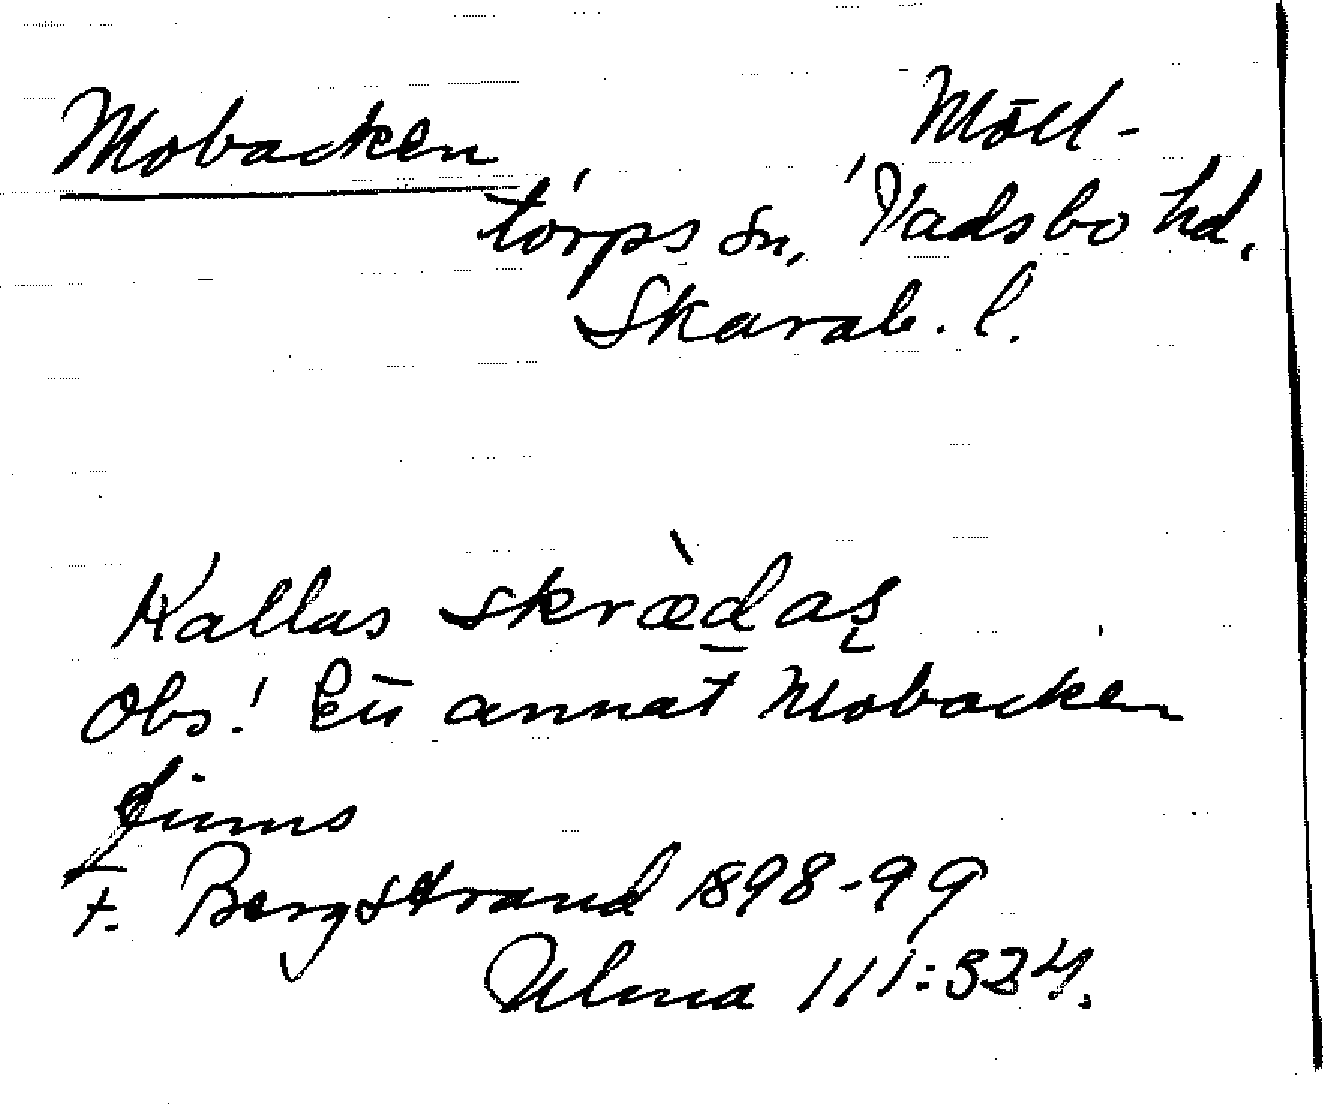 Mobacken Möll-
torps sn, Vadsbo hd.
Skarab. l.
Kallas skrædas
Obs! Ett annat Mobacken
finns
F. Bergstrand 1898-99
Ulma 111:324.